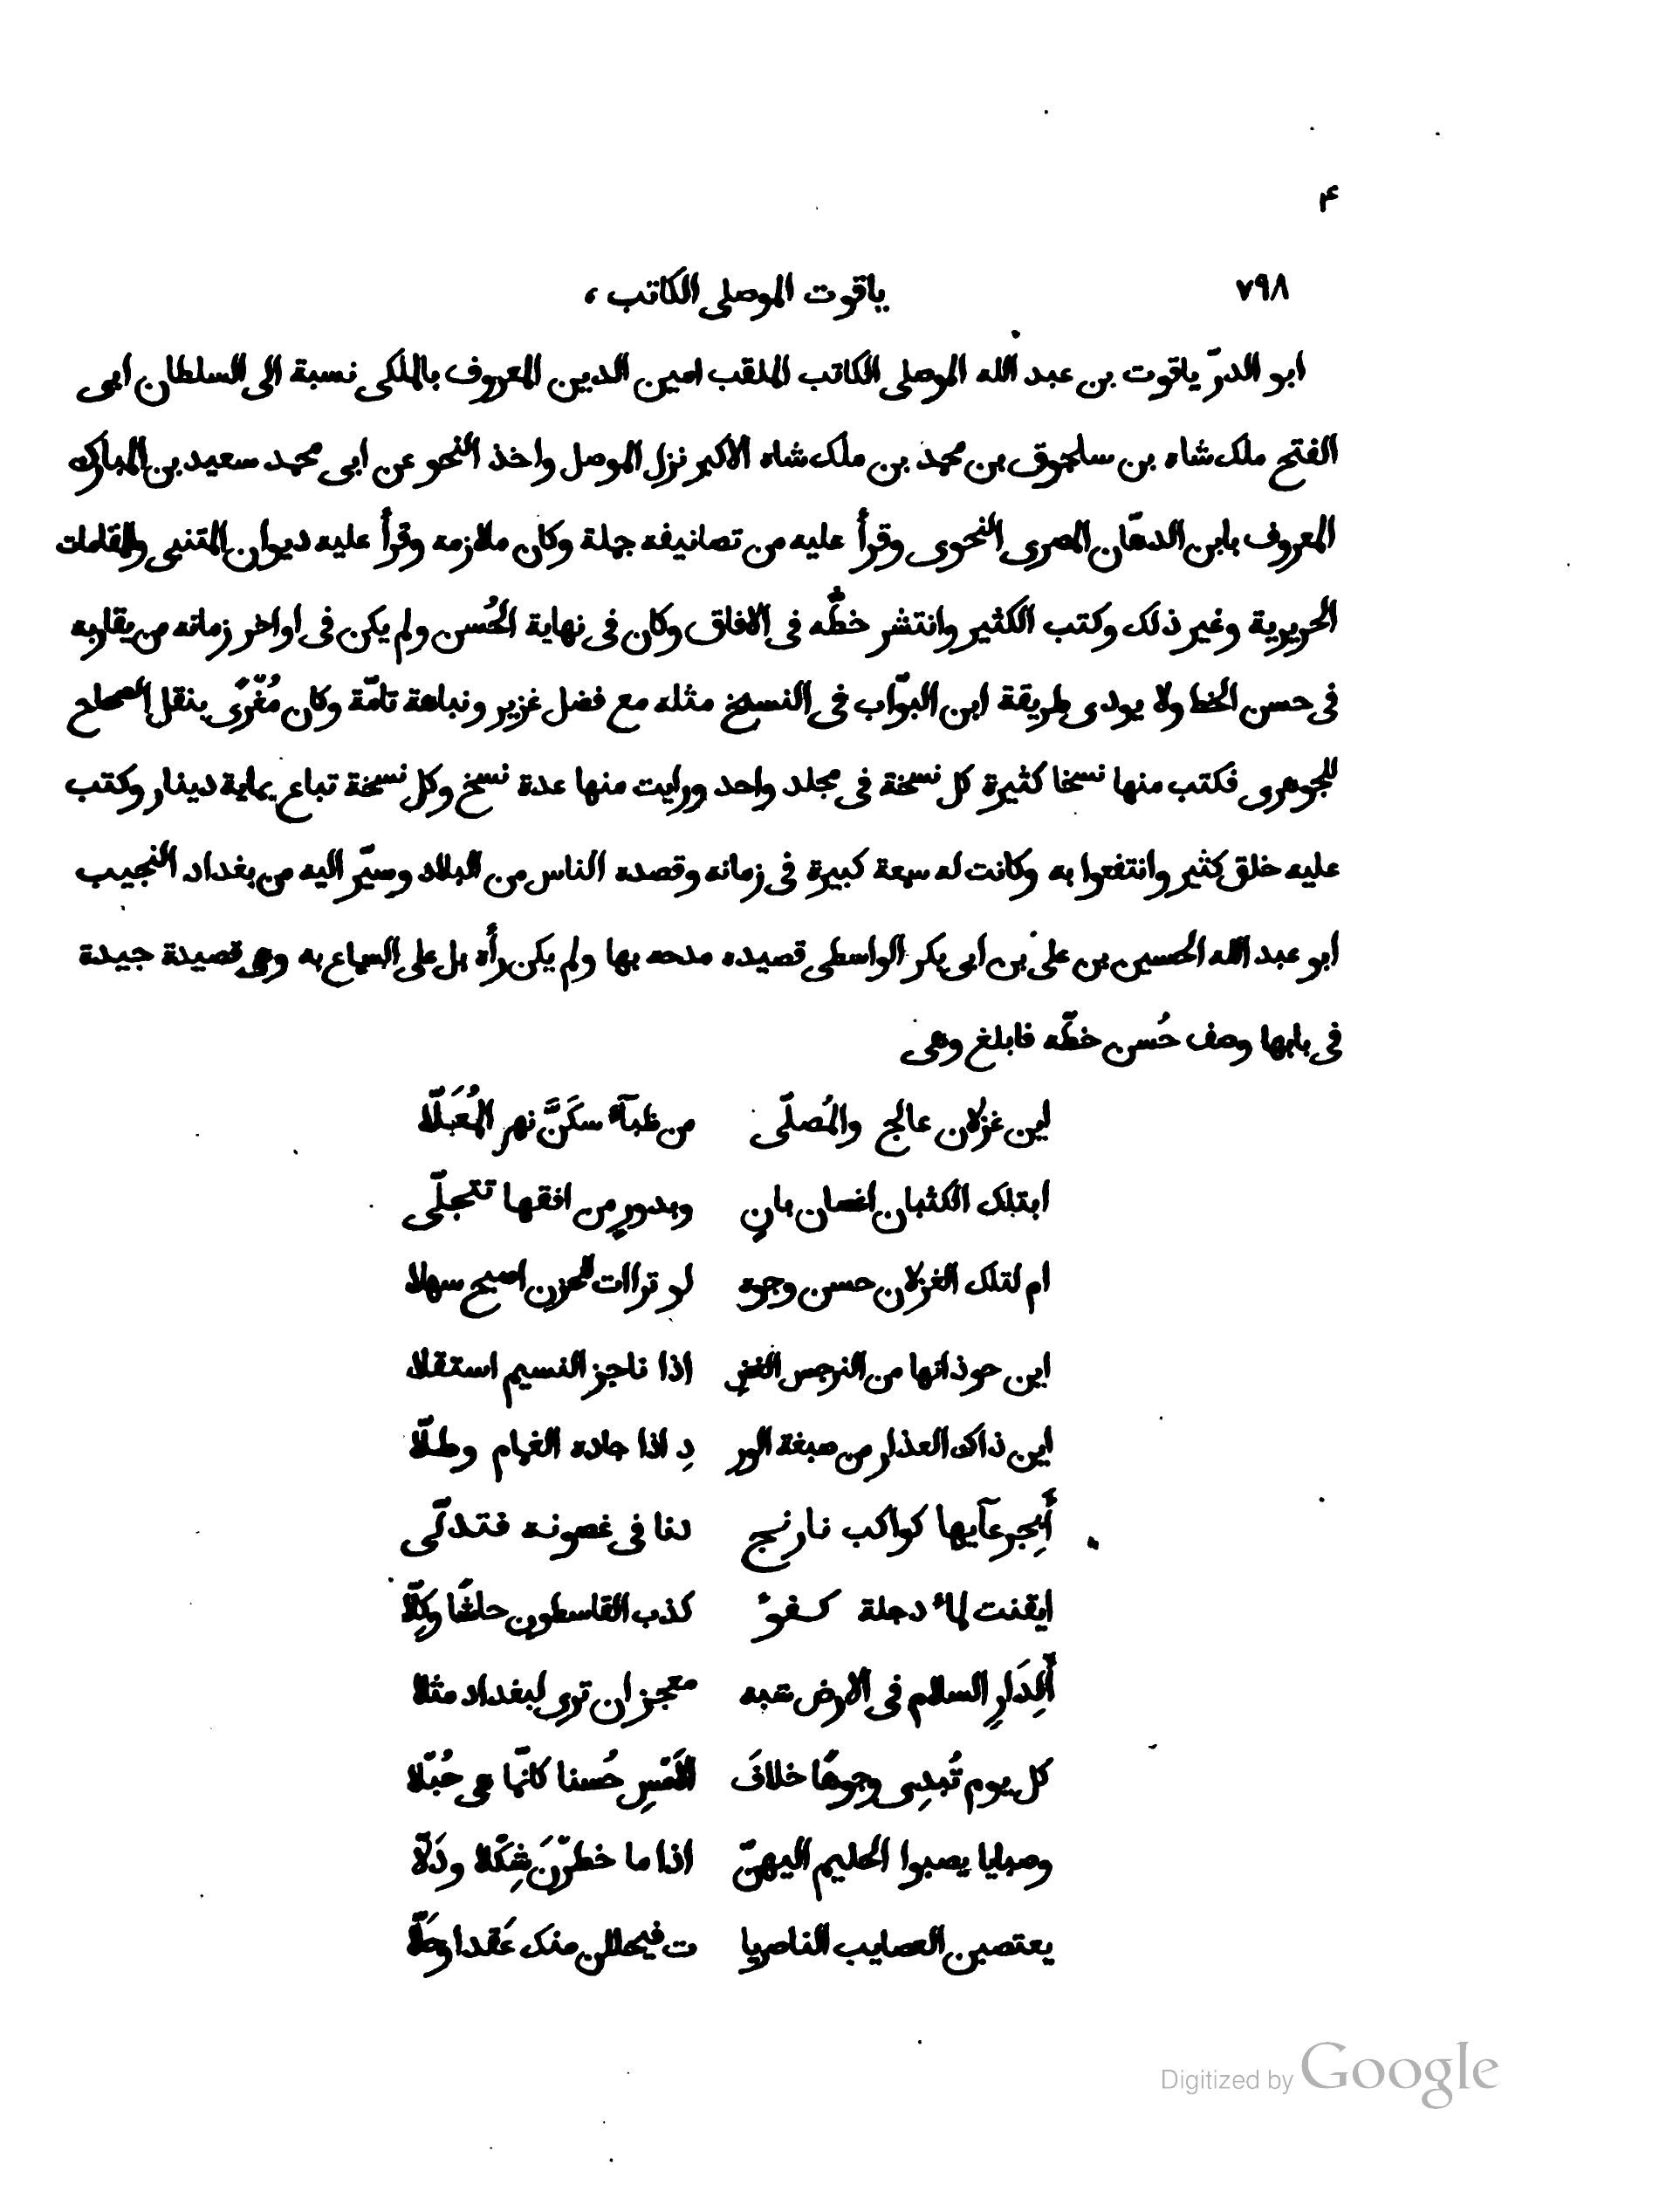 ۴
٧٩٨
ياقوت الموصلى الكاتب ،
ابو الدرّ ياقوت بن عبد الله الموصلى الكاتب الملقب امين الدين المعروف بالملكى نسبة الى السلطان ابى
الفتح ملك شاه بن سلجوق بن محمد بن ملك شاه الاكبر نزل الموصل واخذ النحو عن ابى محمد سعيد بن المبارك
المعروف بابن الدهّان المصرى النحوى وقرأ عليه من تصانيفه جملة وكان ملازمه وقرأ عليه ديوان المتنبى والمقامات
الحريرية وغير ذلك وكتب الكثير وانتشر خطّه فى الافاق وكان فى نهاية الحُسن ولم يكن فى اواخر زمانه من يقاربه
فى حسن الخط ولا يودى طريقة ابن البوّاب فى النسخ مثله مع فضل غزير ونباهة تامّة وكان مُغْرًى بنقل الصحاح
للجوهرى فكتب منها نسخا كثيرة كل نسخة فى مجلد واحد ورايت منها عدة نسخ وكل نسخة تباع بماية دينار وكتب
عليه خلق كثير وانتفعوا به وكانت له سمعة كبيرة فى زمانه وقصده الناس من البلاد وسيّر اليه من بغداد النجيب
ابو عبد الله الحسين بن على بن ابى بكر الواسطى قصيده مدحه بها ولم يكن رأه بل على السماع به وهى قصيدة جيدة
فى بابها وصف حُسن خطّه فابلغ وهى
اين غزلان عالج والمُصلّى من ظبآء سكَنَّ نهر المُعَلّا
ابتلك الكثبان اغصان بانٍ وبدورٍ من افقها تتجلّى
ام لتلك الغزلان حسن وجوه لو تراات للحزن اصبح سهلا
اين حوذانها من النرجس الغض اذا ناجز النسيم استقلا
اين ذاك العذار من صبغة الور دِ اذا جاده الغمام وطلّا
أبِجرعآيها كواكب نارنج دنا فى غصونه فتدلّى
ايقنت لماء دجلة كفوء كذب القاسطون حاشَا وكلّا
ألِدَارِ السلام فى الارض شبه معجز ان ترى لبغداد مثلا
كل يوم تُبدِى وجوهًا خلافَ الأمسِ حُسنا كانّما هى حُبْلا
وصبايا يصبوا الحليم اليهنّ اذا ما خطرْنَ شِكْلا ودَلّا
يعتصبن العصايب الناصريا ت فيحللن منك عَقدا وحَلّا